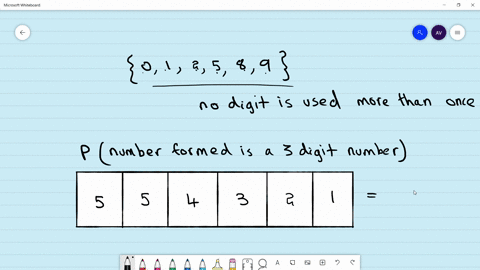 Microsoft Whiteboard
AV
{0, 1, 2, 5, 8, 9}
no digit is used more than once
P (number formed is a 3 digit number)
5 5 4 3 2 1 =